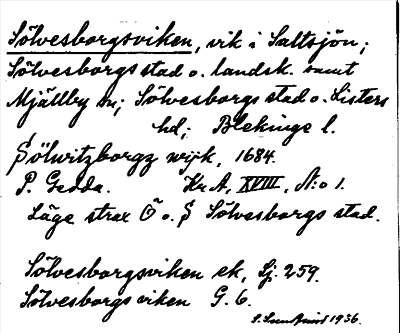 Sölvesborgsviken, vik i Saltsjön;
Sölvesborgs stad o. landsk. samt
Mjällby sn; Sölvesborgs stad o. Listers
hd; Blekinge l.
Sölwitzborgz wijk, 1684.
P. Gedda. Kr A, XVIII, N:o 1.
Läge strax Ö o. S Sölvesborgs stad.
Sölvesborgsviken ek, Sj. 259.
Sölvesborgsviken G. 6.
1936.